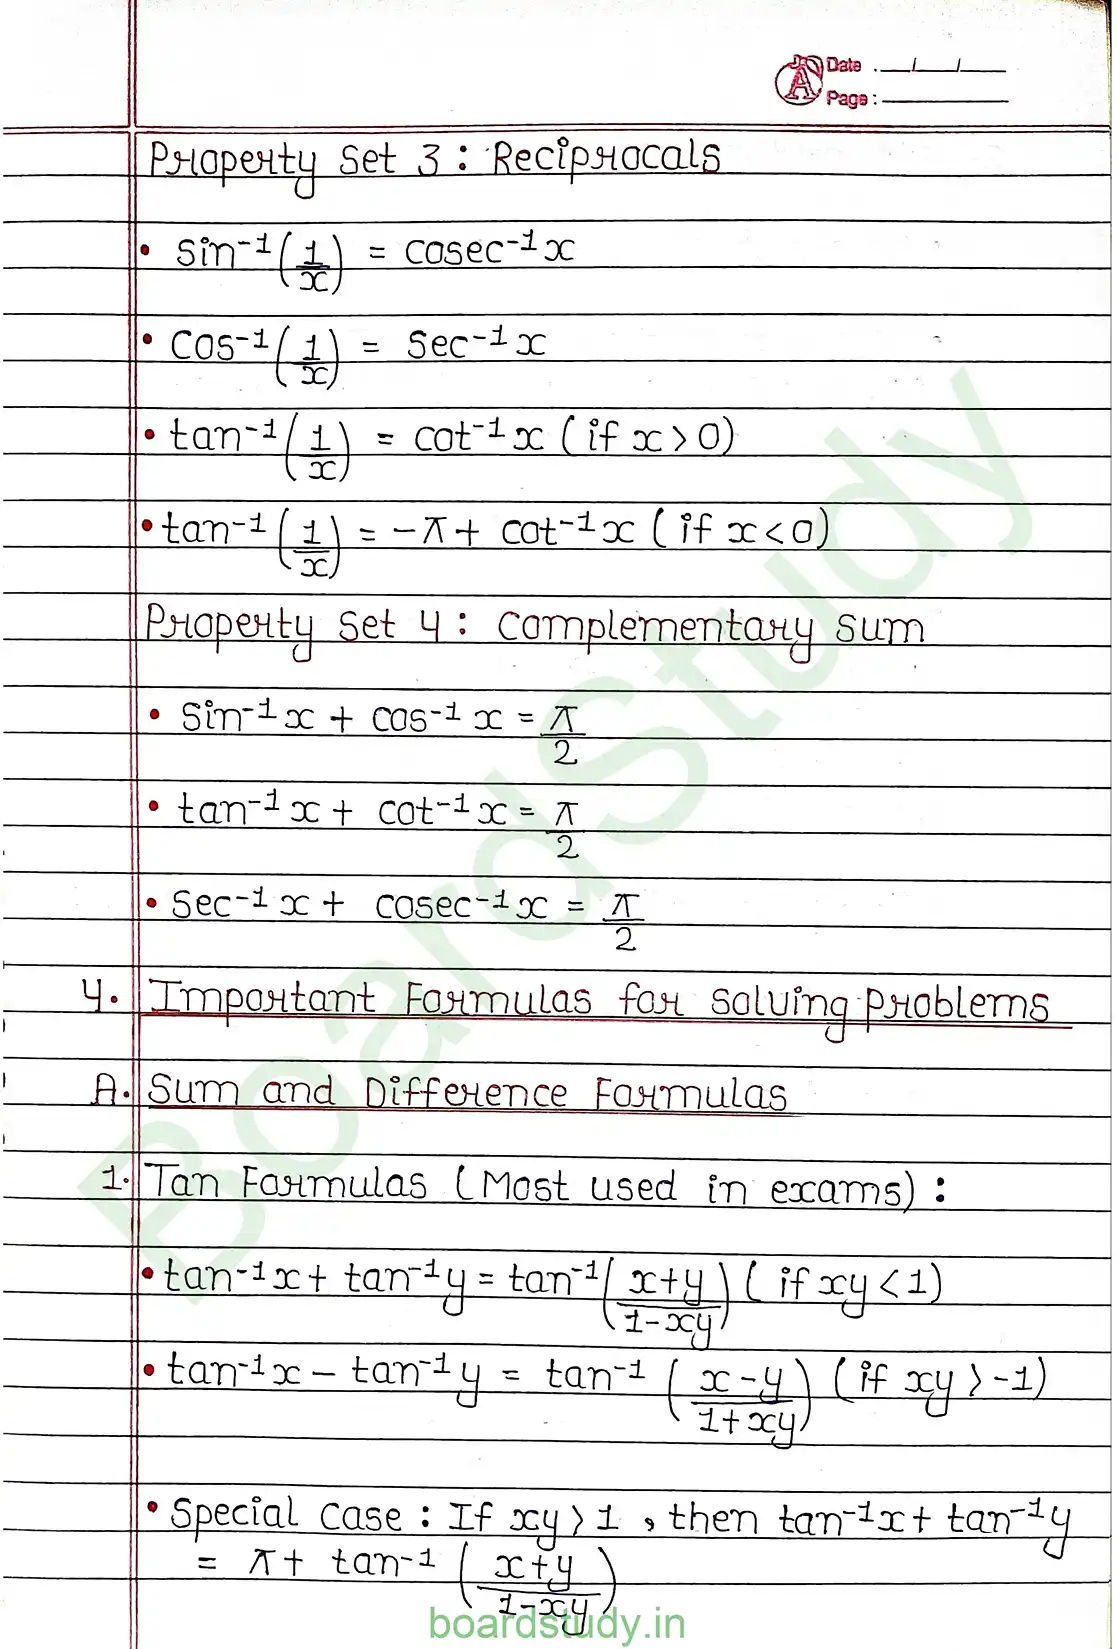 Date : __/__/__
Page :
Property Set 3 : Reciprocals
• sin⁻¹(1/x) = cosec⁻¹x
• cos⁻¹(1/x) = sec⁻¹x
• tan⁻¹(1/x) = cot⁻¹x (if x > 0)
• tan⁻¹(1/x) = -π + cot⁻¹x (if x < 0)
Property Set 4 : complementary sum
• sin⁻¹x + cos⁻¹x = π/2
• tan⁻¹x + cot⁻¹x = π/2
• sec⁻¹x + cosec⁻¹x = π/2
4. Important Formulas for solving problems
A. Sum and Difference Formulas
1. Tan Formulas (Most used in exams) :
• tan⁻¹x + tan⁻¹y = tan⁻¹((x+y)/(1-xy)) (if xy < 1)
• tan⁻¹x - tan⁻¹y = tan⁻¹((x-y)/(1+xy)) (if xy > -1)
• Special case : If xy > 1, then tan⁻¹x + tan⁻¹y
= π + tan⁻¹((x+y)/(1-xy))
BoardStudy
boardstudy.in